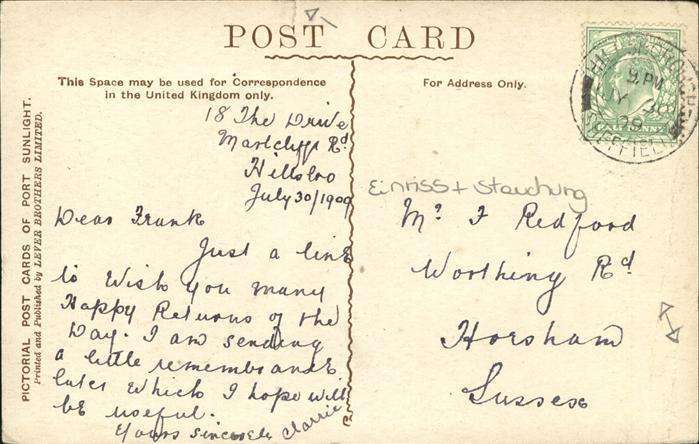 POST CARD
This Space may be used for Correspondence
in the United Kingdom only.
For Address Only.
PICTORIAL POST CARDS OF PORT SUNLIGHT.
Printed and Published by LEVER BROTHERS LIMITED.
18 The Drive
Rd
Hillsbro
July 30/1909
Dear Frank
Just a line
to Wish you many
Happy Returns of the
Day. I am sending
a little remembrance
later which I hope will
be useful.
Yours sincerely Clarrie
Einriss + Stauchung
Mr F Redford
Worthing Rd
Horsham
Sussex
HILLSBOROUGH
9 PM
09
SHEFFIELD